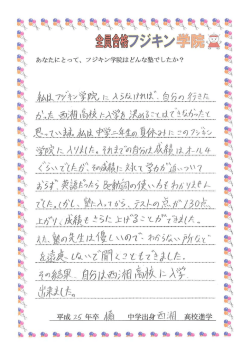 全員合格フジキン学院
あなたにとって、フジキン学院はどんな塾でしたか？
私はフジキン学院に入らなければ、自分の行きた
かった西湘高校に入学を決めることはできなかったと
思っています。私は中学二年生の夏休みにこのフジキン
学院に入りました。それまでの自分は成績はオール4
ぐらいでしたが、その成績に対して学力が追いついて
おらず、英語だったら長動詞の使い方もわかりません
でした。しかし、塾に入ってから、テストの点が130点
上がり、成績もさらに上げることができました。
また、塾の先生は優しいので、わからない所など
を遠慮しないで聞くことができました。
その結果、自分は西湘高校に入学
出来ました。
平成 25 年卒 橘 中学出身 西湘 高校進学